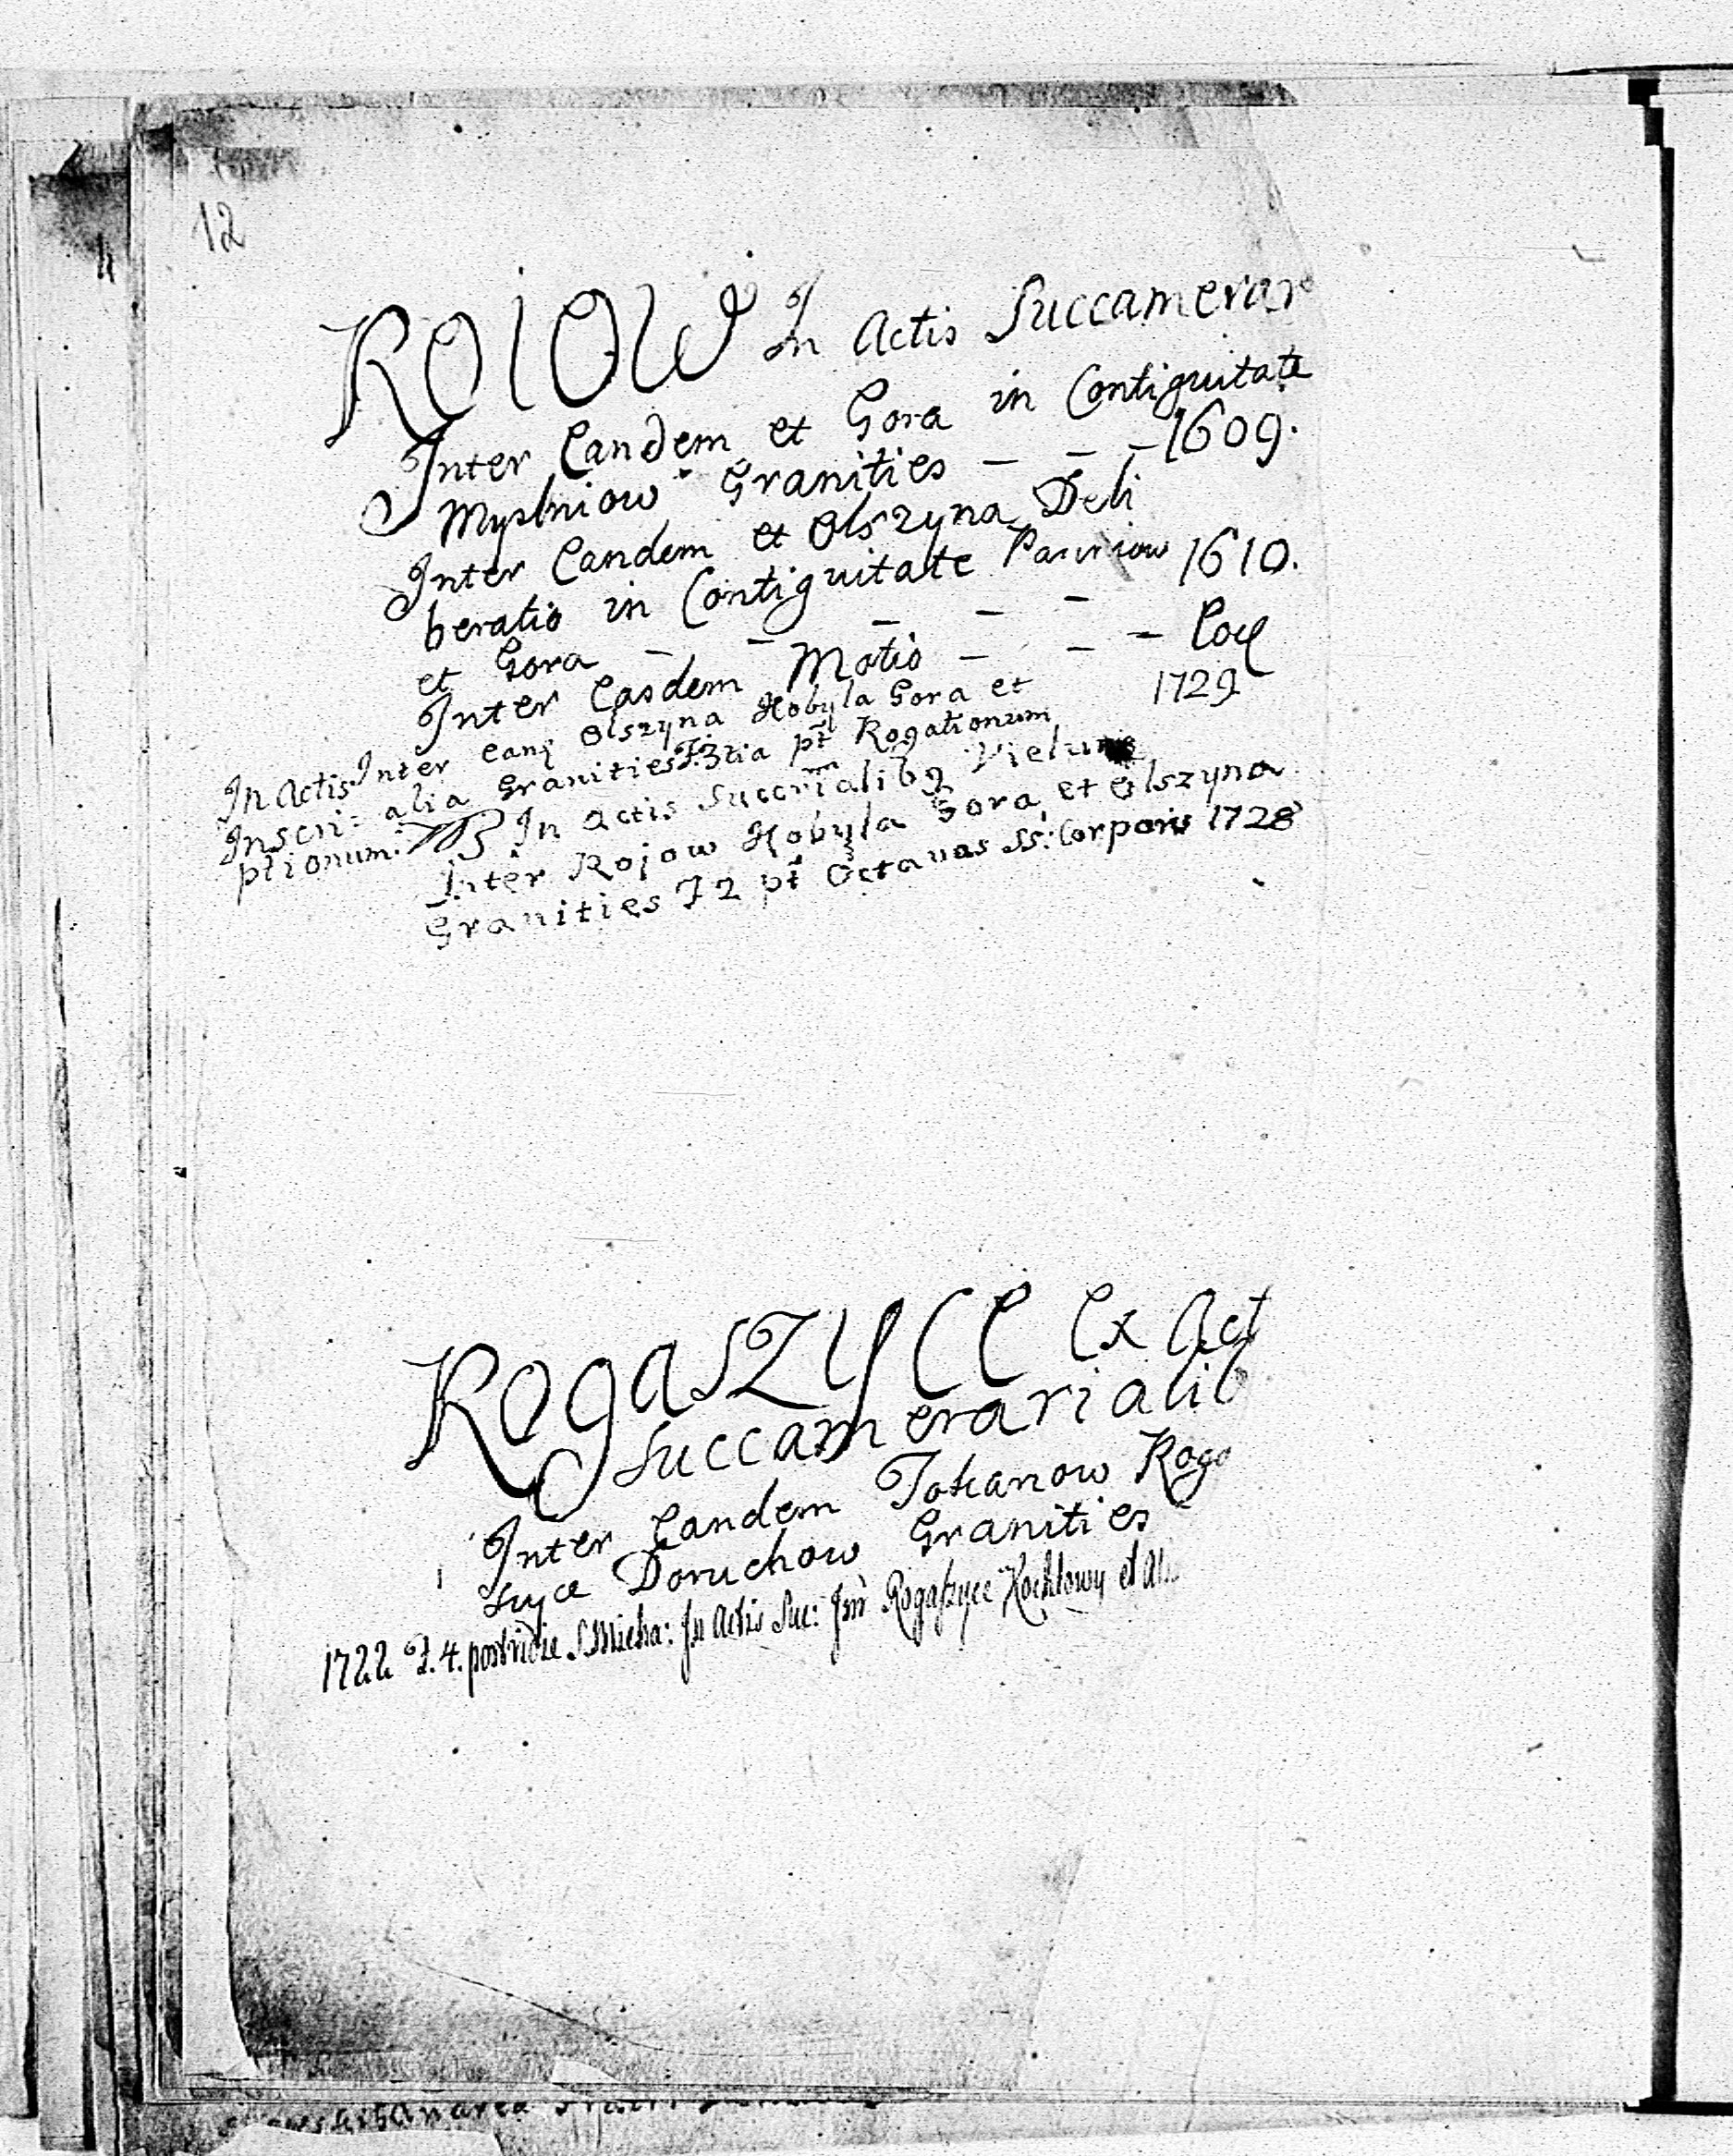 12
Roiow In Actis Succamerar
Inter Eandem et Gora in Contiguitate
Myslniow Granities — — — 1609.
Inter Eandem et Olszyna Deli
beratio in Contiguitate 1610.
et Gora — — — — —
Inter Easdem Motio — — — Eod
Inter eanq Olszyna Kobyla Gora et 1729
In Actis alia Granities F. 3tia pt Rogationum
Inscri= ptionum. NB In Actis Succrialibq Vielun
Inter Rojow Kobyla Gora et Olszyna
Granities F 2 pt Octavas SS: Corporis 1728
Rogaszyce Ex Act
Succamerarialib
Inter Eandem Tokarzow Roga
szyce Doruchow Granities
1722 F. 4. postridie S. Micha: In Actis Suc: Int Rogaszyce Kochlowy et